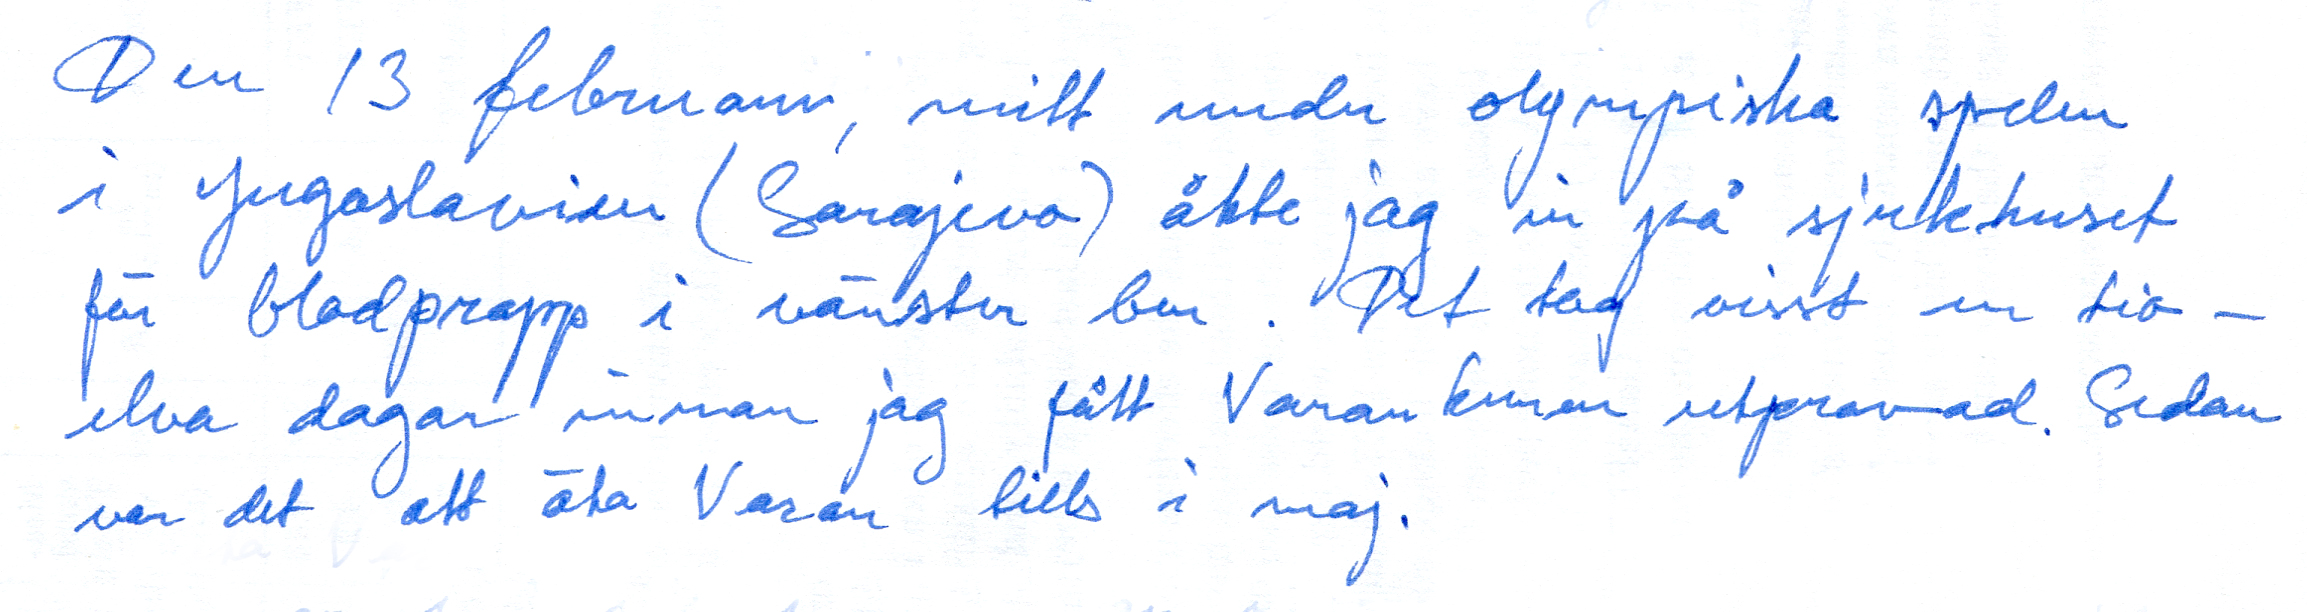 Den 13 februari, mitt under olympiska spelen
i Jugoslavien (Sarajevo) åkte jag in på sjukhuset
för blodpropp i vänster ben. Det tog visst en tio-
elva dagar innan jag fått Varan kuren utprovad. Sedan
var det att äta Varan tills i maj.